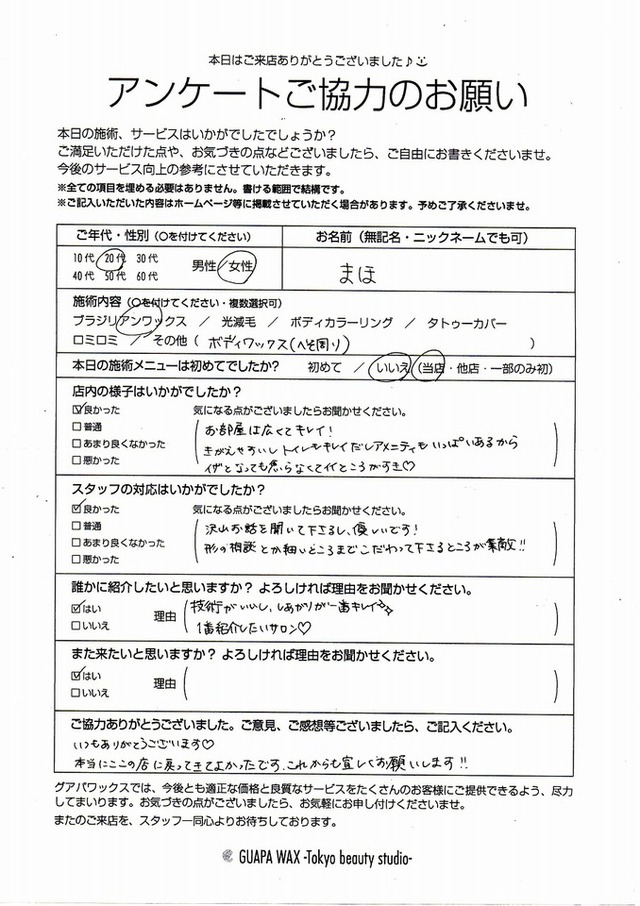 本日はご来店ありがとうございました♪
アンケートご協力のお願い
本日の施術、サービスはいかがでしたでしょうか？
ご満足いただけた点や、お気づきの点などございましたら、ご自由にお書きくださいませ。
今後のサービス向上の参考にさせていただきます。
※全ての項目を埋める必要はありません。書ける範囲で結構です。
※ご記入いただいた内容はホームページ等に掲載させていただく場合があります。予めご了承くださいませ。
ご年代・性別（○を付けてください） お名前（無記名・ニックネームでも可）
10代 20代 30代
40代 50代 60代
男性／女性
まほ
施術内容（○を付けてください・複数選択可）
ブラジリアンワックス ／ 光減毛 ／ ボディカラーリング ／ タトゥーカバー
ロミロミ ／ その他（ ボディワックス(へそ周り) ）
本日の施術メニューは初めてでしたか？ 初めて ／ いいえ（当店・他店・一部のみ初）
店内の様子はいかがでしたか？
☑良かった 気になる点がございましたらお聞かせください。
□普通 お部屋は広くてキレイ！
□あまり良くなかった きがえやすいしトイレもキレイだしアメニティもいっぱいあるから
□悪かった イザとなっても焦らなくてイイところがすき♡
スタッフの対応はいかがでしたか？
☑良かった 気になる点がございましたらお聞かせください。
□普通 沢山お話を聞いて下さるし、優しいです！
□あまり良くなかった 形の相談とか細いところまでこだわって下さるところが素敵!!
□悪かった
誰かに紹介したいと思いますか？ よろしければ理由をお聞かせください。
☑はい 理由 技術がいいし、しあがりが一番キレイ
□いいえ 1番紹介したいサロン♡
また来たいと思いますか？ よろしければ理由をお聞かせください。
☑はい 理由
□いいえ
ご協力ありがとうございました。ご意見、ご感想等ございましたら、ご記入ください。
いつもありがとうございます♡
本当にここの店に戻ってきてよかったです、これからも宜しくお願いします!!
グアパワックスでは、今後とも適正な価格と良質なサービスをたくさんのお客様にご提供できるよう、尽力
してまいります。お気づきの点がございましたら、お気軽にお申し付けくださいませ。
またのご来店を、スタッフ一同心よりお待ちしております。
GUAPA WAX -Tokyo beauty studio-